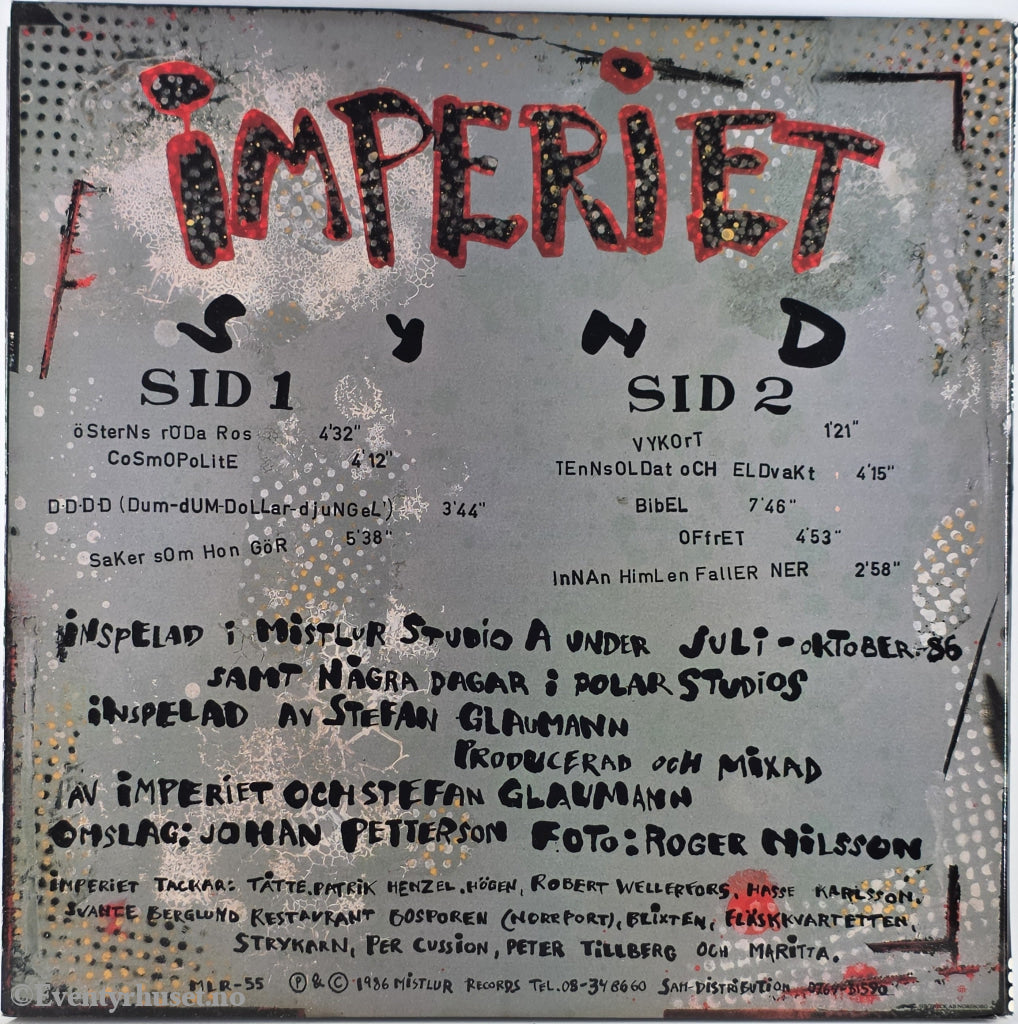 iMPERiET
SYND
SID 1
öSterNs rÖDa Ros 4'32"
CoSmOPoLitE 4'12"
D-D-D-D (Dum-dUM-DoLLar-djuNGeL') 3'44"
SaKer sOm Hon GöR 5'38"
SID 2
VYKOrT 1'21"
TEnNsOLDat oCH ELDvaKt 4'15"
BibEL 7'46"
OFfrET 4'53"
InNAn HimLen FallER NER 2'58"
iNSPELAD i MiSTLUR STUDiO A UNDER JULi - OKTOBER -86
SAMT NÅGRA DAGAR i POLAR STUDiOS
iNSPELAD AV STEFAN GLAUMANN
PRODUCERAD OCH MiXAD
AV iMPERiET OCH STEFAN GLAUMANN
OMSLAG: JOHAN PETTERSON FOTO: ROGER NiLSSON
iMPERiET TACKAR: TÅTTE, PATRiK HENZEL, HÖGEN, ROBERT WELLERFORS, HASSE KARLSSON,
SVANTE BERGLUND RESTAURANT BOSPOREN (NORRFORT), BLiXTEN, FLÄSKKVARTETTEN,
STRYKARN, PER CUSSiON, PETER TiLLBERG OCH MARiTTA.
MLR-55 Ⓟ & © 1986 MiSTLUR RECORDS TEL. 08-34 86 60 SAM-DiSTRiBUTiON 0764-31590
©Eventyrhuset.no